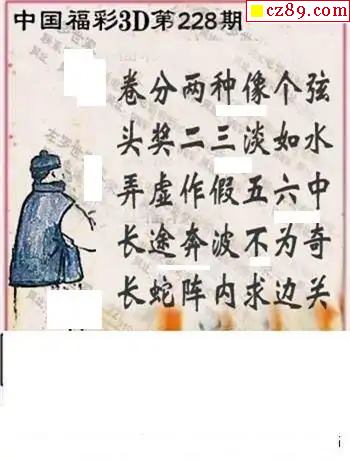 cz89.com
中国福彩3D第228期
卷分两种像个弦
头奖二三淡如水
弄虚作假五六中
长途奔波不为奇
长蛇阵内求边关
i